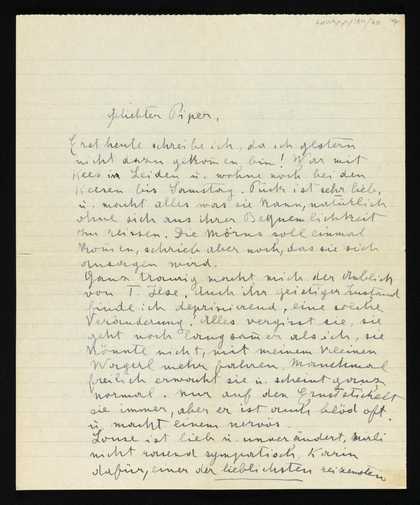 geliebter Piper,
Erst heute schreibe ich, da ich gestern
nicht dazu gekommen bin! War mit
Kees in Leiden u. wohne noch bei den
Keesen bis Samstag. Puck ist sehr lieb,
u. macht alles was sie kann, natürlich
ohne sich aus ihrer Bequemlichkeit
zu reissen. Die soll einmal
kommen, schrieb aber noch, das sie sich
ansagen wird.
Ganz traurig macht mich der Anblick
von T. Ilse. Auch ihr geistiger Zustand
finde ich deprimierend, eine solche
Veränderung! Alles vergisst sie, sie
geht noch langsamer als ich, sie
könnte nicht, mit meinem kleinen
Wagerl mehr fahren. Manchmal
freilich erwacht sie u. scheint ganz
normal. Nur auf den stichelt
sie immer, aber er ist auch blöd oft
u. macht einem nervös.
ist lieb u. unverändert,
nicht rasend sympatisch, Karin
dafür, einer der lieblichsten reizendsten